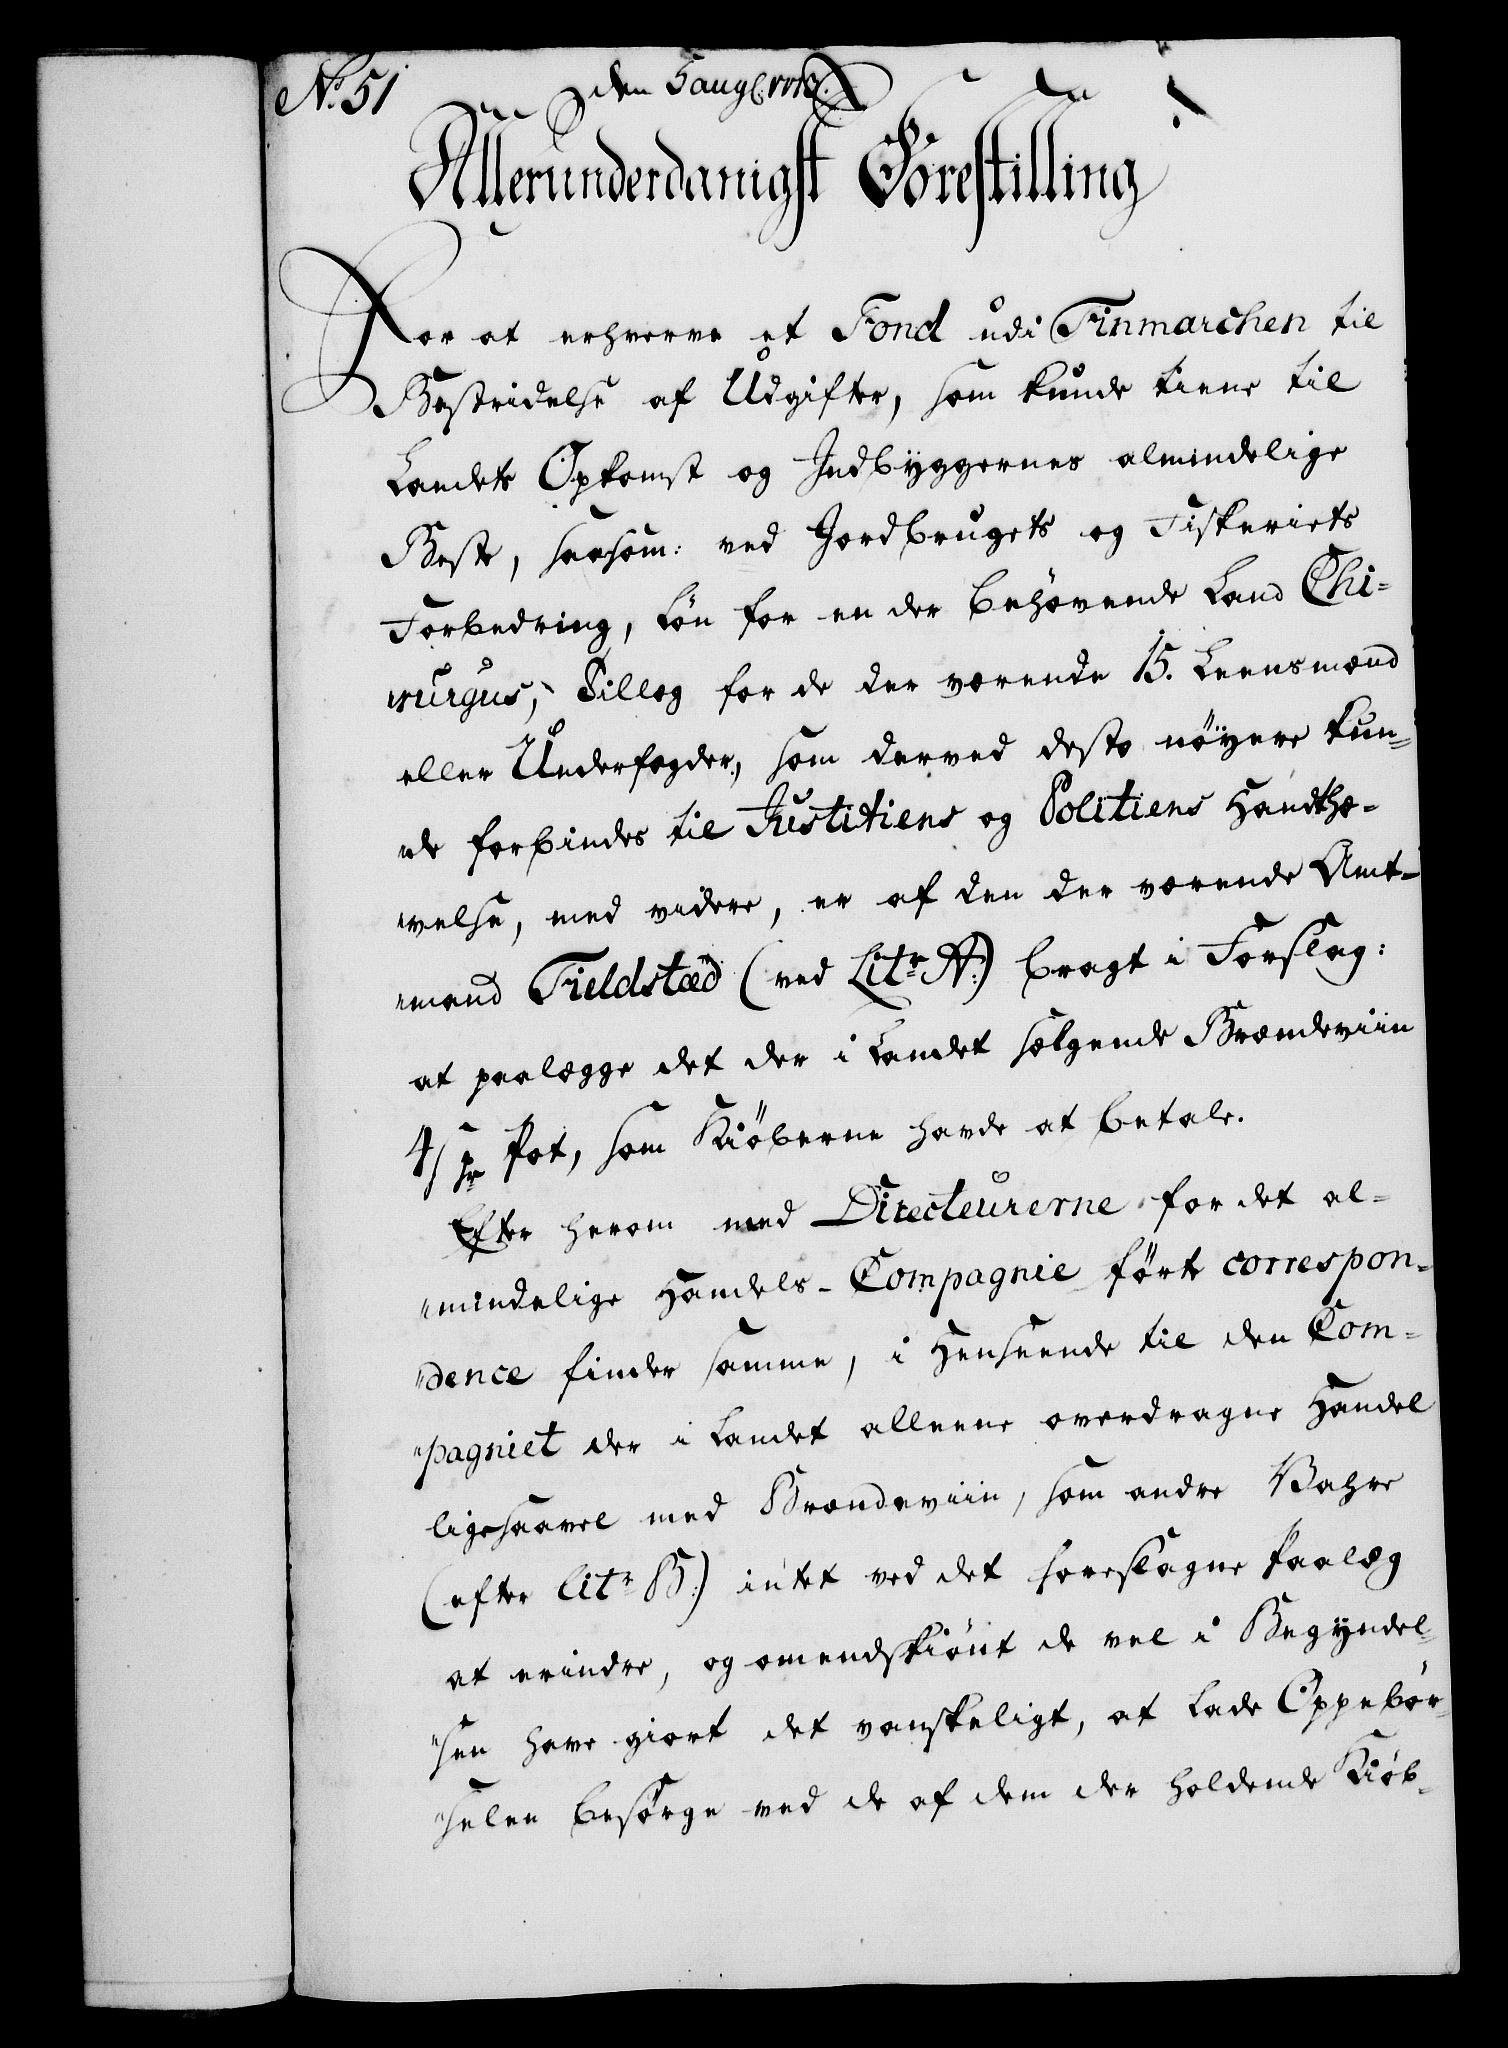 No. 51
den 5 aug
Allerunderdanigst Forestilling
For at erhverve et Fond udi Finmarchen til
Bestridelse af Udgifter, som kunde tiene til
Landets Opkomst og Indbyggernes almindelige
Beste, saasom: ved Jordbrugets og Fiskeriets
Forbedring, Løn for en der behøvende Land Chi-
rurgus, Tillæg for de der værende 15. Leensmænd
eller Underfogder, som derved desto nöyere kun-
de forbindes til Justitiens og Politiens Handthæ-
velse, med videre, er af den der værende Amt-
mand Fieldstæd (ved Litr. A.) bragt i Forslag:
at paalægge det der i Landet sælgende Brændeviin
4 s pr Pot, som Kiöberne havde at betale.
Efter herom med Directeurerne for det al-
mindelige Handels-Compagnie förte correspon-
dence finder samme, i Henseende til den Com-
pagniet der i Landet alleene overdragne Handel
ligesaavel med Brændeviin, som andre Vahre
(efter Litr. B.) intet ved det foreslagne Paalæg
at erindre, og omendskiönt de vel i Begyndel-
sen have giort det vanskeligt, at lade Oppebör-
selen besørge ved de af dem der holdende Kiöb-